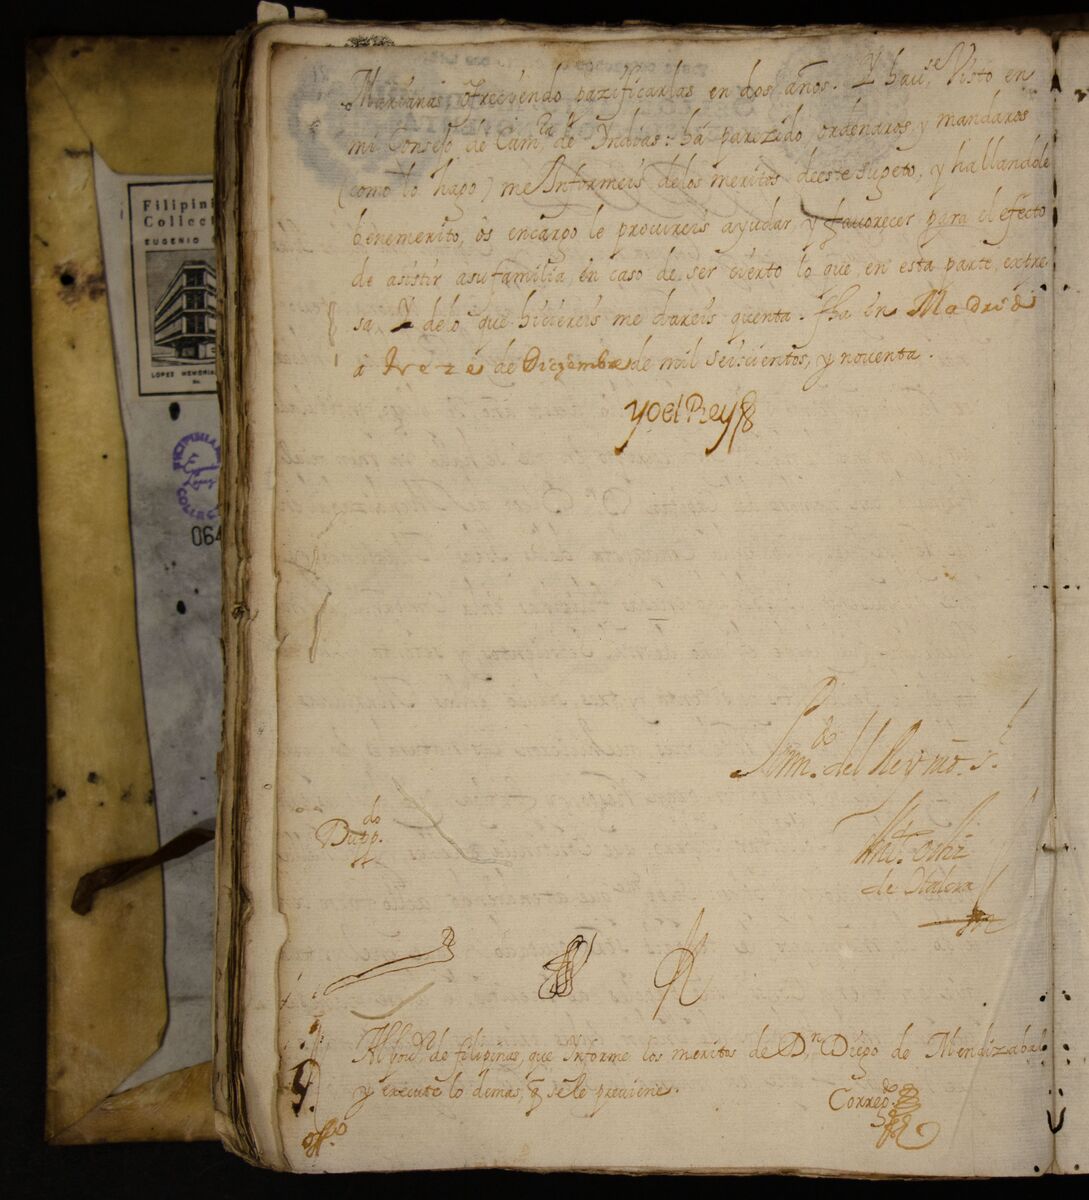 Marianas ofreçiendo pazificarlas en dos años. Y hav.se Visto en
mi Consejo de Cam.ra de Yndias: ha parezido ordenaros, y mandaros
(como lo hago) me Informeis de los meritos de este sugeto, y hallandole
benemerito, òs encargo le procureis ayudar, y favorecer para el efecto
de asistir a su familia, en caso de ser cierto lo que, en esta parte, expre
sa, Y de lo que hiciereis me dareis quenta. fha en Madrid
a treze de Diziembre de mil seiscientos, y noventa.
Yo el Rey
Por m.do del Rey nro. s.r
Dupp.do
Ant. Ortiz
de Otalora
Al Gov.or de filipinas, que Informe los meritos de D.n Diego de Mendizabal
y execute lo demas, q se le previene.
Correg.do
off.o
Filipini
Collect
EUGENIO
LOPEZ MEMORIAL
FILIPINIANA
COLLEC
064